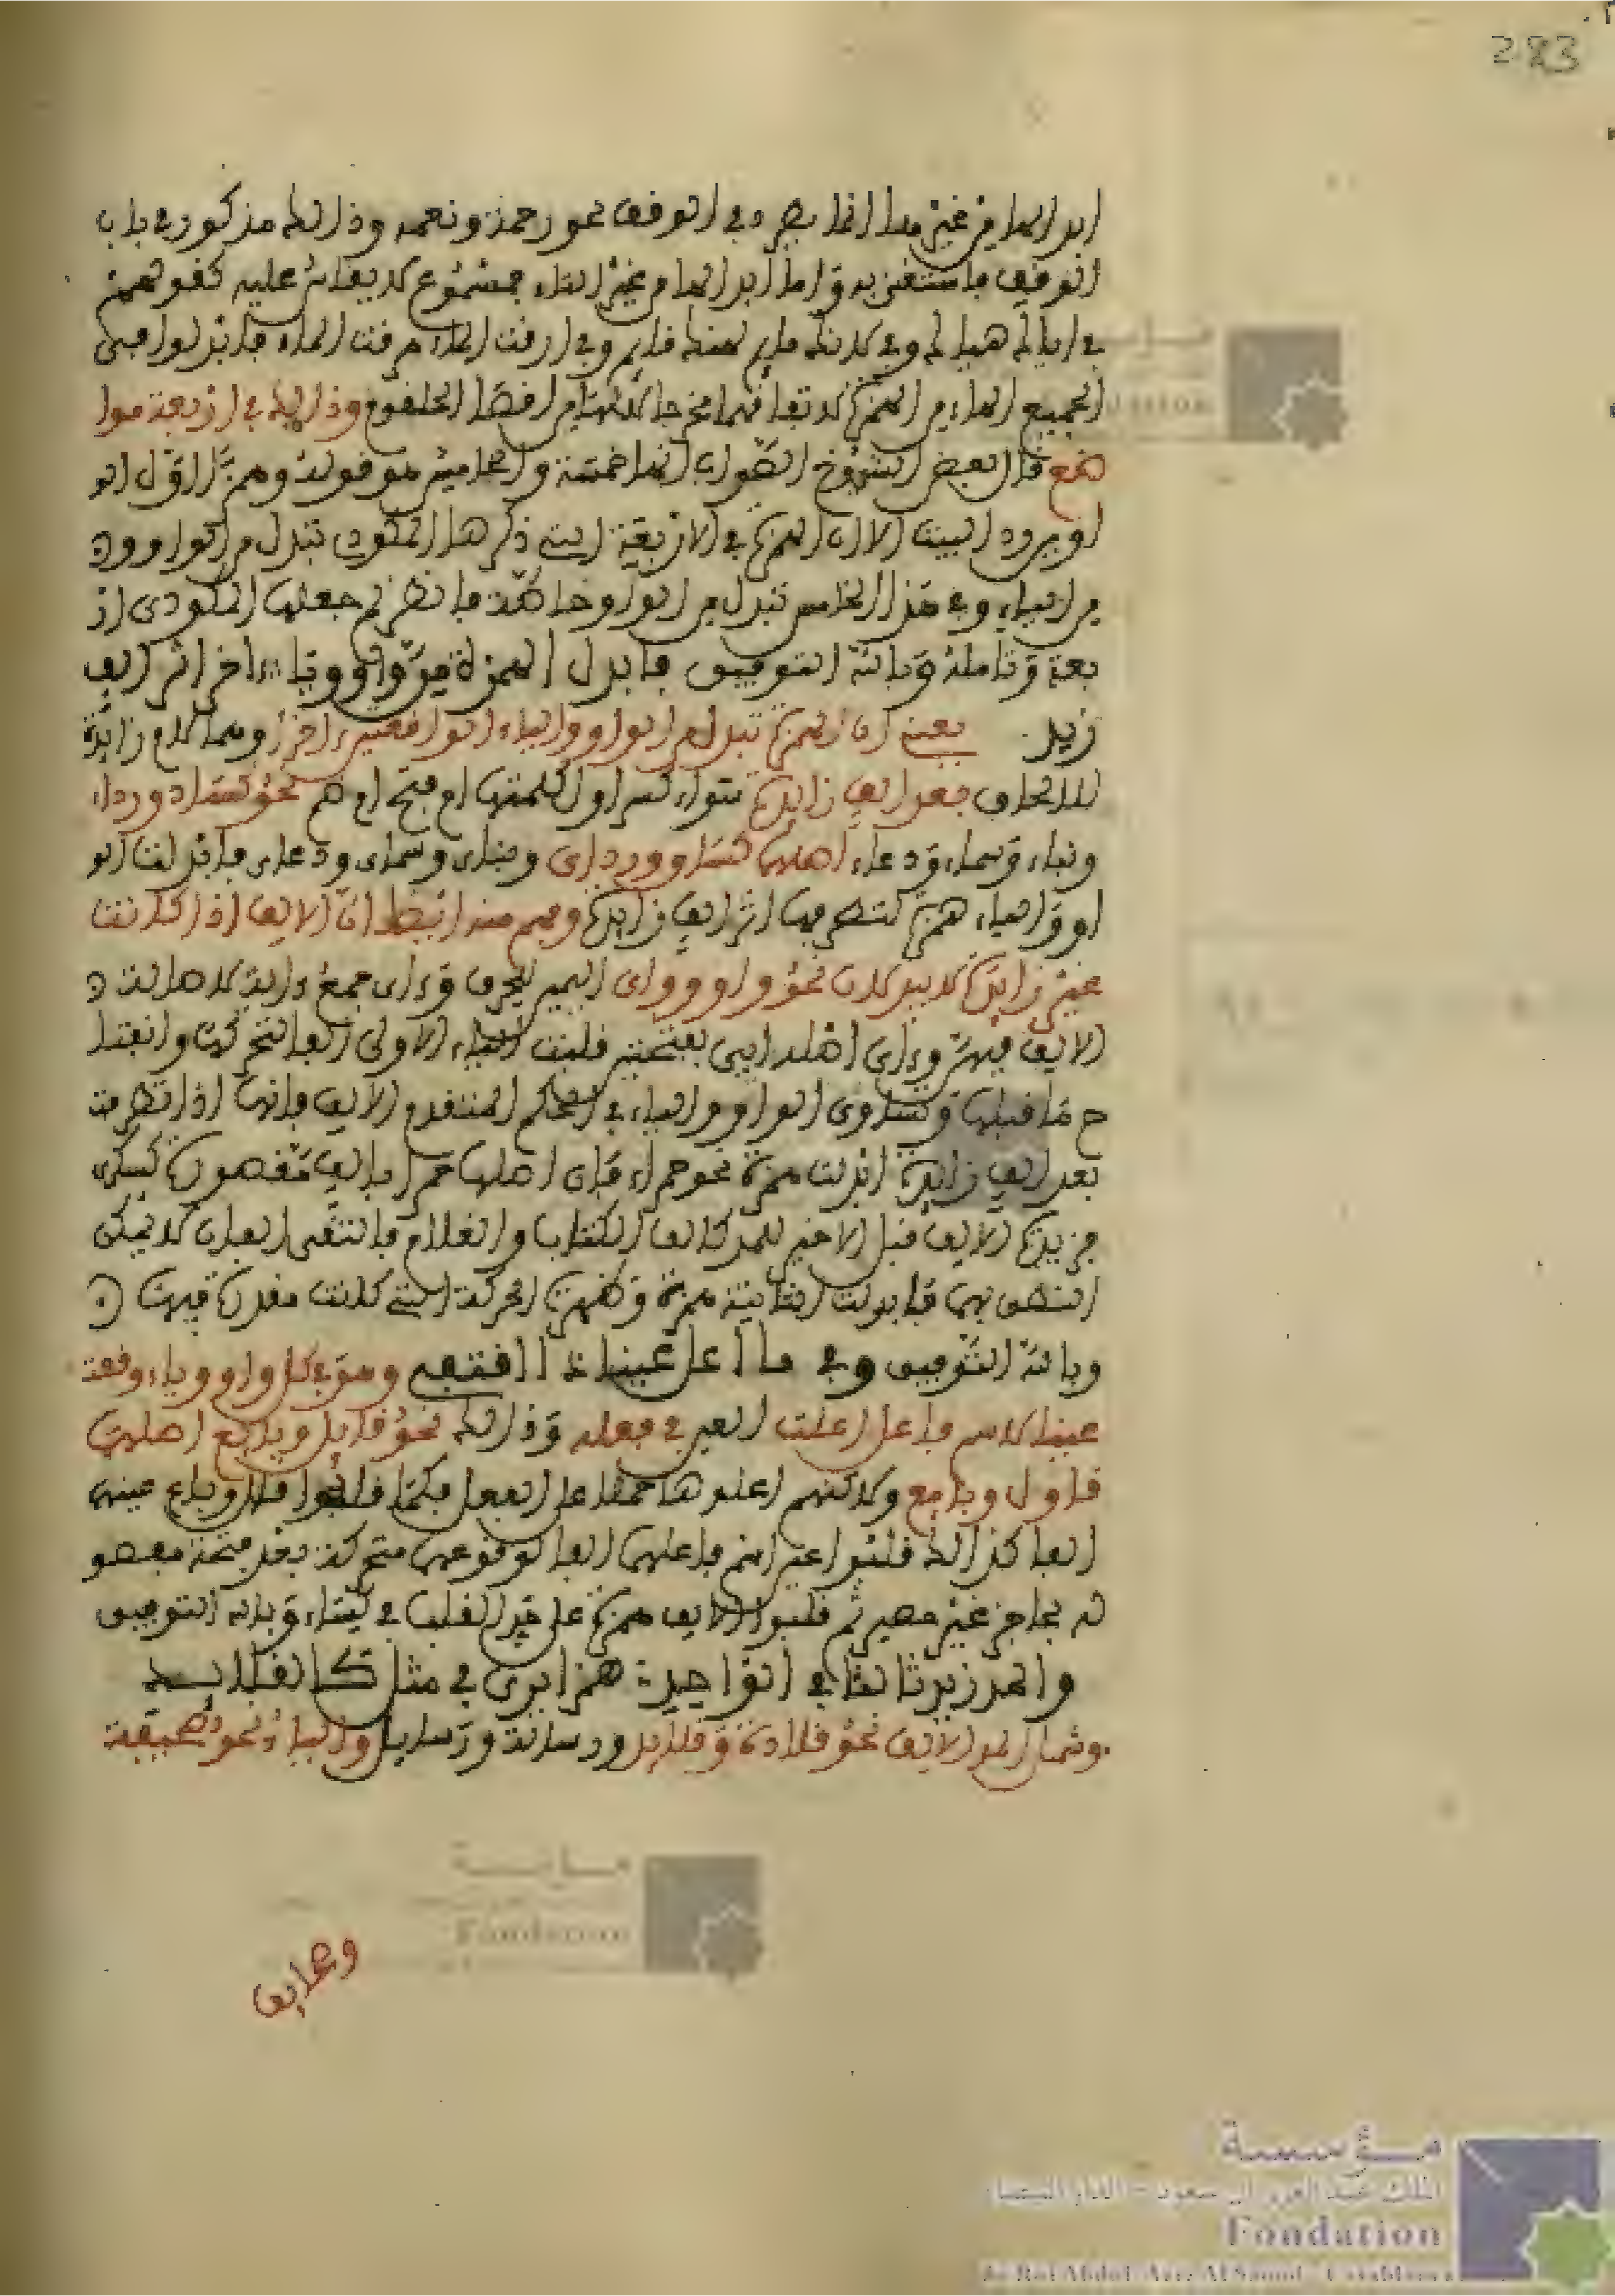 283
ابدالها من غير هذا انما يطرد في الوقف نحو رحمة ونعمه وذالك مذكور في باب
الوقف فاستغنى به واما ابدالها من غير التاء فمسموع لا يقاس عليه كقولهم
في اياك هياك وفي لانك لهنك وفي ارقت الماء هرقت الماء فابدلوا في
الجميع الهاء من الهمزة لاتفاقهما مخرجا لانهما من اقصا الحلق وذالك في اربعة موا
ضع قال بعض الشيوخ الصواب انها خمسة والخامس هو قوله وهمزا اول الو
اوين رد البيت الا ان الهمزة في الاربعة التي ذكرها المكودي تبدل من الواو ون
من الياء وفي هذا الخامس تبدل من الواو خاصة فانظر لم جعلها المكودي ار
بعة وتامله وبالله التوفيق فابدل الهمزة من واو ويا اخرا اثر الف
زيد يعني ان الهمزة تبدل من الواو والياء الواقعتين اخرا ومما لام زائدة
للالحاق بعد الف زايدة سواء كسر اول كلمتها ام فتح ام ضم نحو كساء ورداء
وبناء وسماء ودعاء اصلها كساو ورداي وبناي وسماو ودعاو فابدلت الو
او والياء همزة لتطرفها اثر الف زايدة وفهم منه ايضا ان الالف اذا كانت
غير زايدة لا يبدلان نحو واو وواي اسم لحرف وءاي جمع ءاية لاصالة
الالف فيهن وءاي اصله ايي بفتحتين قلبت الياء الاولى الفا لتحركها وانفتا
ح ما قبلها وتساوى الواو والياء في الحكم المتقدم الالف فانها اذا تطرفت
بعد الف زايدة ابدلت همزة نحو حمراء فان اصلها حمرا بالف مقصورة كسكرى
فزيدت الالف قبل الاخير للمد كالف الكتاب والغلام فالتقى الفان لا يمكن
النطق بهما فابدلت الثانية همزة وظهرت الحركة التي كانت مقدرة فيها
وبالله التوفيق وفي فاعل ما اعل عينا ذا اقتفي وهو في كل واو وياء وقعت
عينا لاسم فاعل اعلت العين في فعله وذالك نحو قايل وبايع اصلهما
قاول وبايع ولاكنهم اعلوها حملا على الفعل فكما قالوا قال وباع عينها
الفا كذالك قلبوا عين اسم فاعلها الفا لوقوعها متحركة بعد فتحة مفصو
لة بحاجز غير حصين ثم قلبوا الالف همزة على حد القلب في كساء وبالله التوفيق
والمد زيد ثالثا في الواحد همزا يرى في مثل كالقلايد
وشمل المد الالف نحو قلادة وقلايد ورسالة ورسايل والياء نحو صحيفة
وصحايف
مؤسسة
الملك عبد العزيز آل سعود - الدار البيضاء
Fondation
du Roi Abdul-Aziz Al Saoud - Casablanca